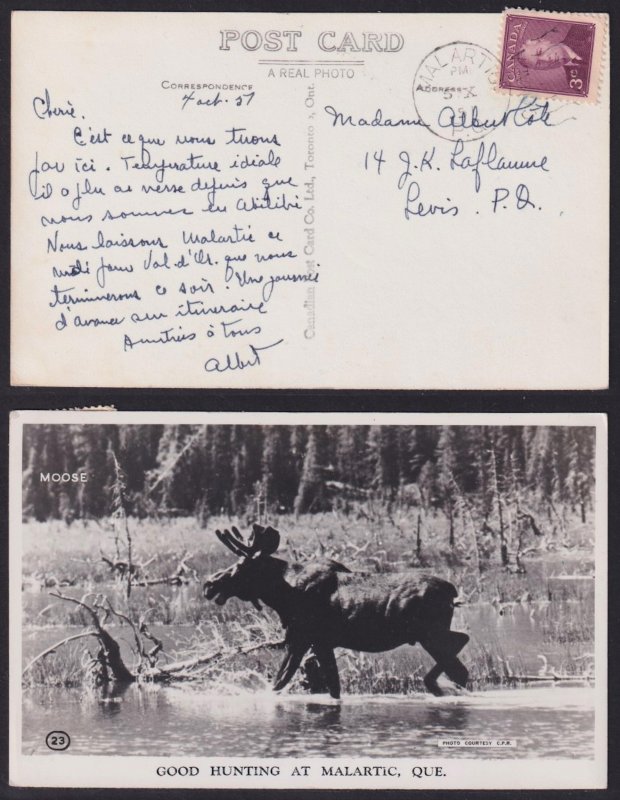 POST CARD
A REAL PHOTO
CORRESPONDENCE
ADDRESS
MALARTIC
PM
5 X
P.Q.
CANADA
3¢
4 oct. 51
Cherie.
C'est ce que nous tuons
par ici. Temperature idiale
il a plu a verse depuis que
nous sommes en Abitibi
Nous laissons Malartic ce
midi pour Val. d'Or. que nous
terminerons ce soir. Une journée
d'avance sur itineraire
Amitiés à tous
Albert
Madame Albert Côté
14 J.K. Laflamme
Levis. P.Q.
Canadian Post Card Co. Ltd., Toronto, Ont.
MOOSE
23
PHOTO COURTESY C.P.R.
GOOD HUNTING AT MALARTIC, QUE.